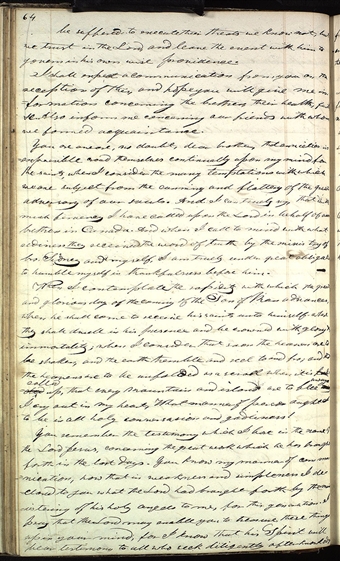 64
be suffered to execute their threats we know not, but
we trust in the Lord and leave the event with him to
govern in his own wise providence.
I shall expect a communication from you on the
reception of this, and hope you will give me in-
formation concerning the brethren their health, faith
&c. Also inform me concerning our friends with whom
we formed acquaintance.
You are aware, no doubt, dear brother, that anxieties
inexpressible crowd themselves continually upon my mind for
the saints, when I consider the many temptations with which
we are subject from the cunning and flattery of the great
adversary of our souls. And I can truly say that with
much fervency I have called upon the Lord in behalf of our
brethren in Canada. And when I call to mind with what
readiness they received the word of truth by the ministry of
bro. Sidney and myself, I am truly under great obligations
to humble myself in thankfulness before him.
When I contemplate the rapidity with which the great
and glorious day of the coming of the Son of Man advances,
when he shall come to receive his saints unto himself where
they shall dwell in his presence and be crowned with glory &
immortality; when I consider that soon the heavens are to
be shaken, and the earth tremble and reel to and fro; and that
the heavens are to be unfolded as a scroll when it is
rolled up, that every mountain and island are to flee away
I cry out in my heart, What manner of person ought I
to be in all holy conversation and godliness!
You remember the testimony which I bore in the name of
the Lord Jesus, concerning the great work which he has brought
forth in the last days. You know my manner of commu-
nication, how that in weakness and simpleness I de-
clared to you what the Lord had brought forth by the min-
istering of his holy angels to me, for this generation. I
pray that the Lord may enable you to treasure these things
upon your mind, for I know that his Spirit will
bear testimony to all who seek diligently after knowledge